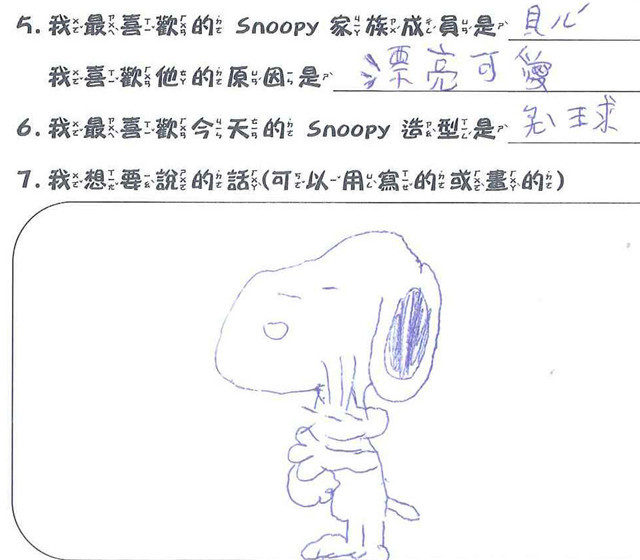 5. 我最喜歡的 Snoopy 家族成員是 貝心
我喜歡他的原因是 漂亮可愛
6. 我最喜歡今天的 Snoopy 造型是 王求
7. 我想要說的話(可以用寫的或畫的)